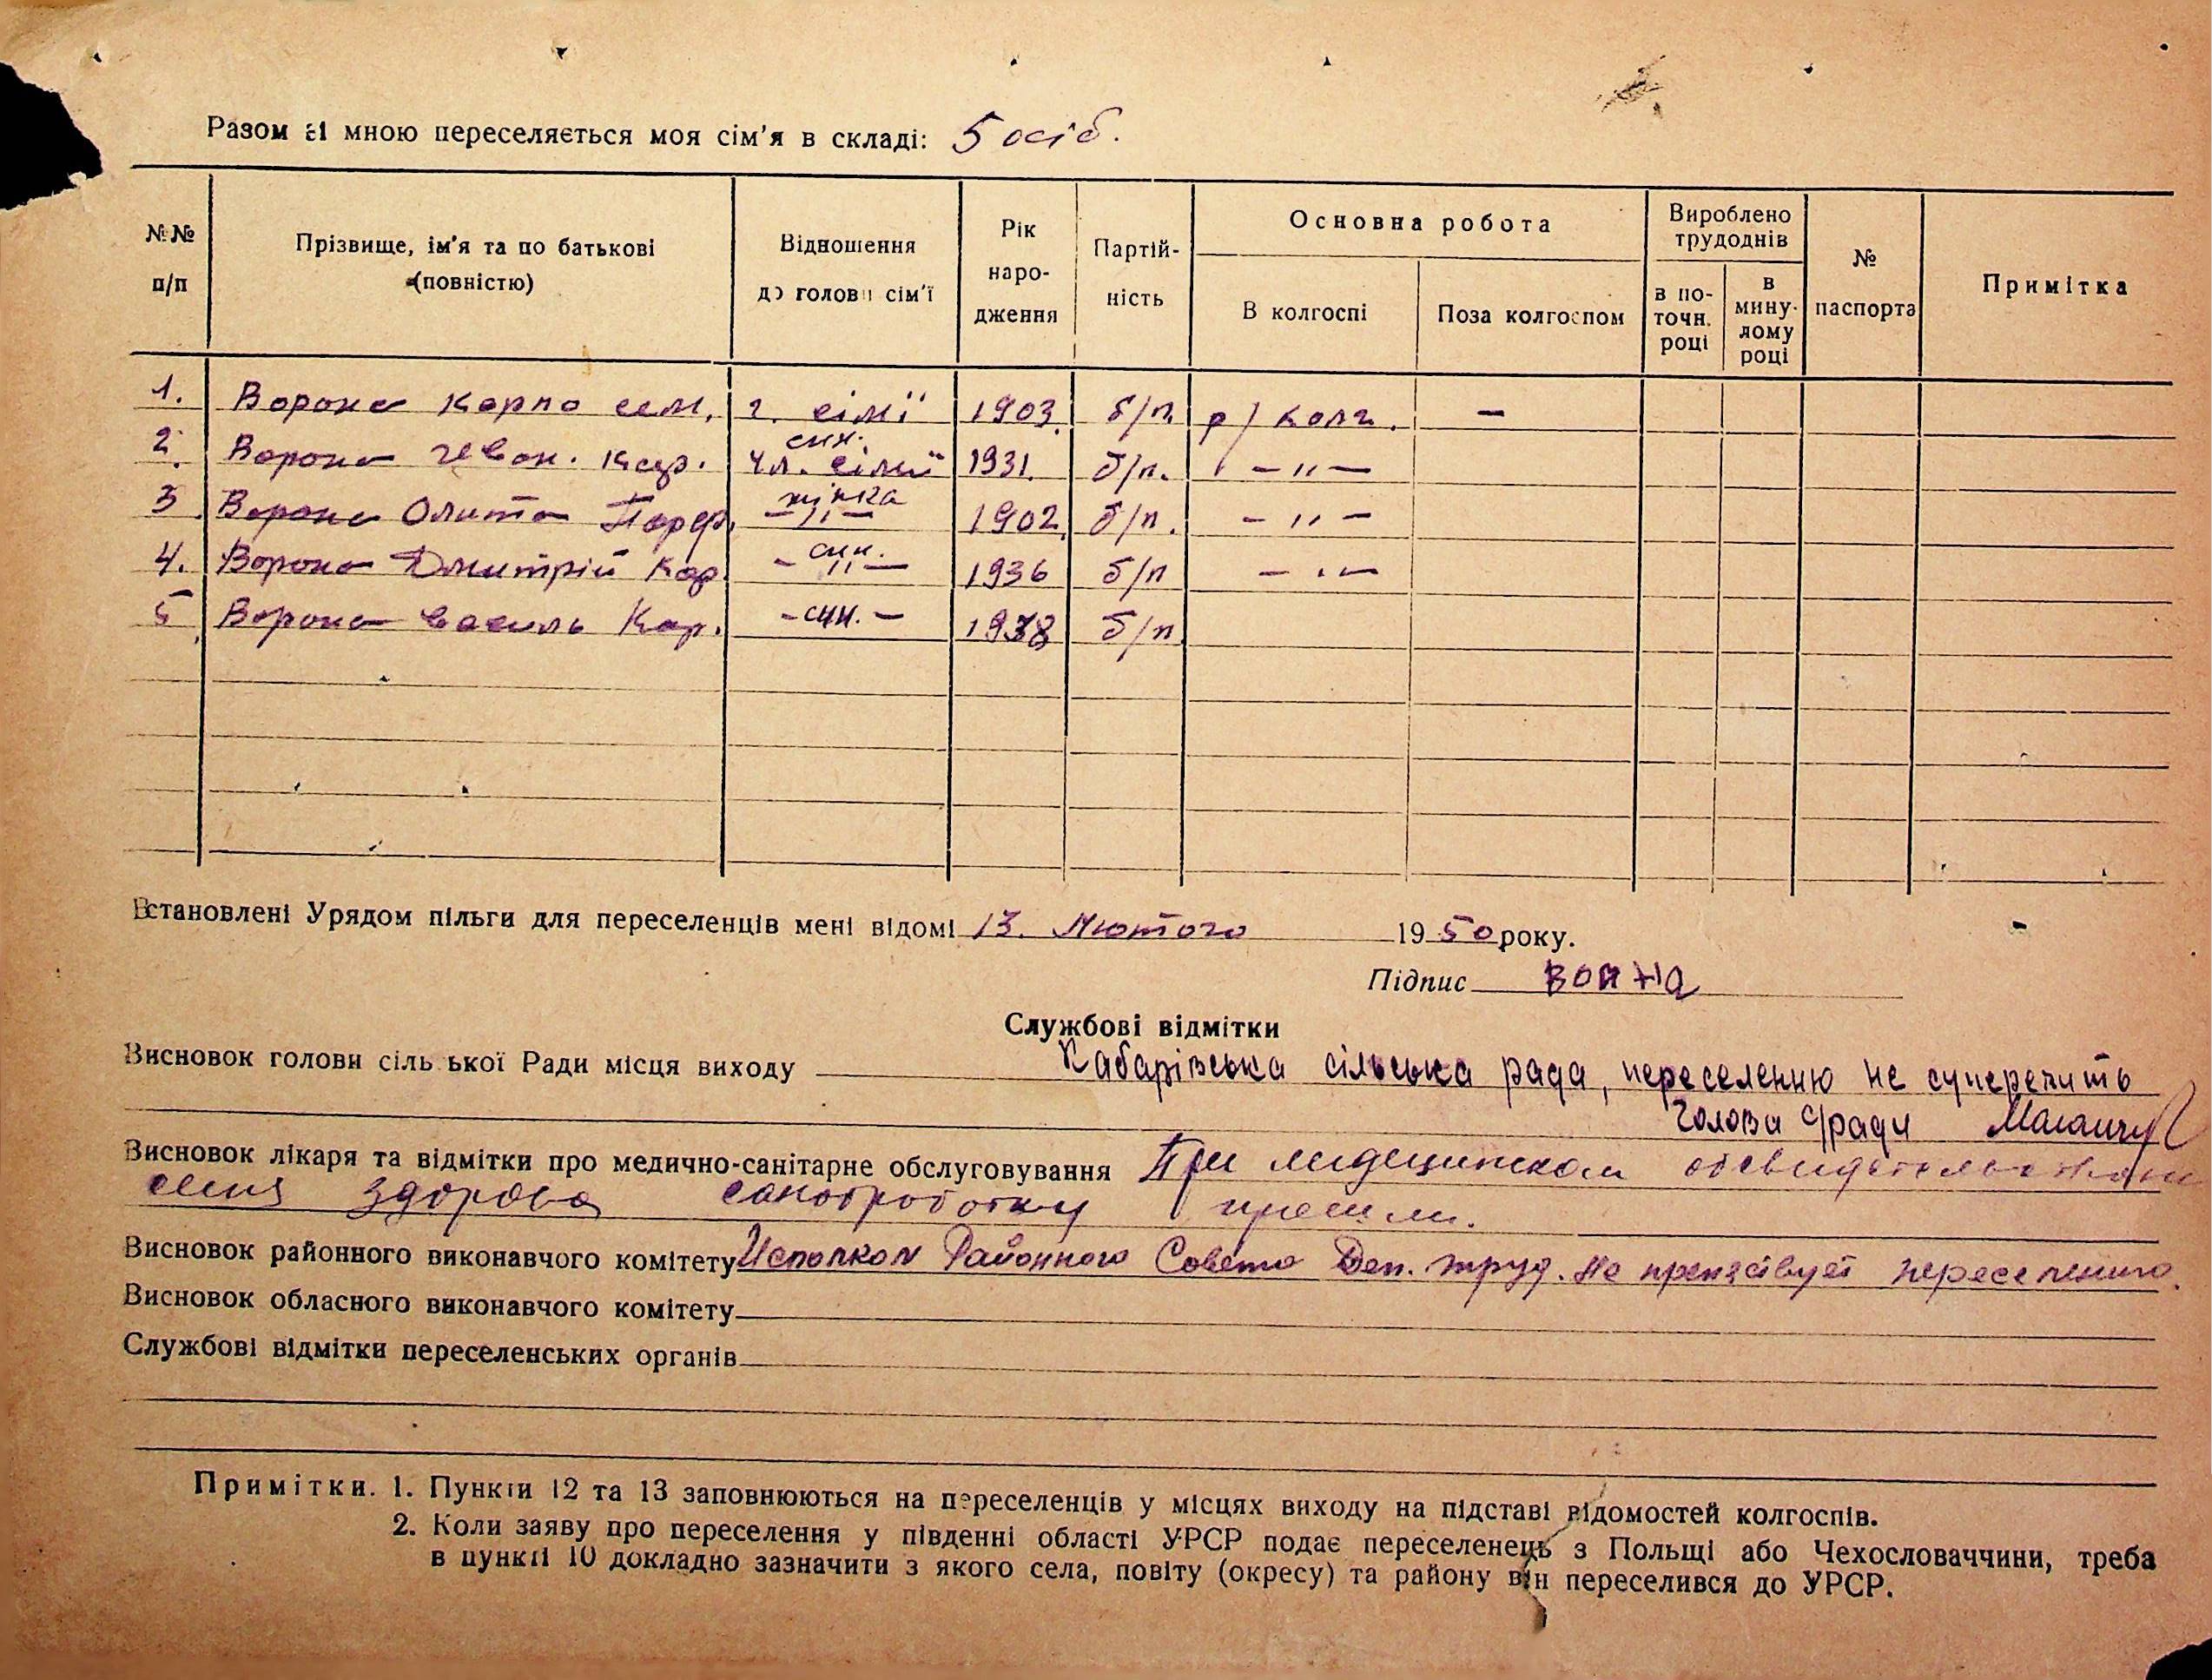 Разом зі мною переселяється моя сім'я в складі: 5 осіб.
№№ п/п
Прізвище, ім'я та по батькові (повністю)
Відношення до голови сім'ї
Рік народження
Партійність
Основна робота
В колгоспі
Поза колгоспом
Вироблено трудоднів
в поточн. році
в минулому році
№ паспорта
Примітка
1. Ворона Карпо сем. г. сімїї 1903 б/п р/колг. —
2. Ворона Кар. син. чл. сімїї 1931. б/п. — " —
3 Ворона Порф. жінка — " — 1902 б/п. — " —
4. Ворона Дмитрій Кар. син. — " — 1936 б/п — " —
5 Ворона Василь Кар. — син. — 1938 б/п
Встановлені Урядом пільги для переселенців мені відомі 13. Лютого 1950 року.
Підпис
Службові відмітки
Висновок голови сільської Ради місця виходу Кабарівська сільська рада, переселенню не суперечить
Голова с/ради
Висновок лікаря та відмітки про медично-санітарне обслуговування При медицинском освидетельствовании
семя здорова санобработку прошли.
Висновок районного виконавчого комітету Исполком Районного Совета Деп. труд. не препятствует переселению.
Висновок обласного виконавчого комітету
Службові відмітки переселенських органів
Примітки. 1. Пункти 12 та 13 заповнюються на переселенців у місцях виходу на підставі відомостей колгоспів.
2. Коли заяву про переселення у південні області УРСР подає переселенець з Польщі або Чехословаччини, треба
в пункті 10 докладно зазначити з якого села, повіту (окресу) та району він переселився до УРСР.